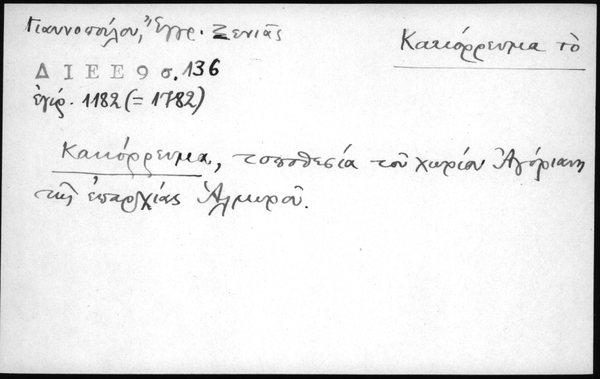 Γιαννοπούλου, Ἔγγρ. Ξενιᾶς
Κακόρρευμα τὸ
ΔΙΕΕ 9 σ. 136
ἐγίρ. 1182 (= 1782)
Κακόρρευμα, τοποθεσία τοῦ χωρίου Ἀγόριανη
τῆς ἐπαρχίας Ἁλμυροῦ.